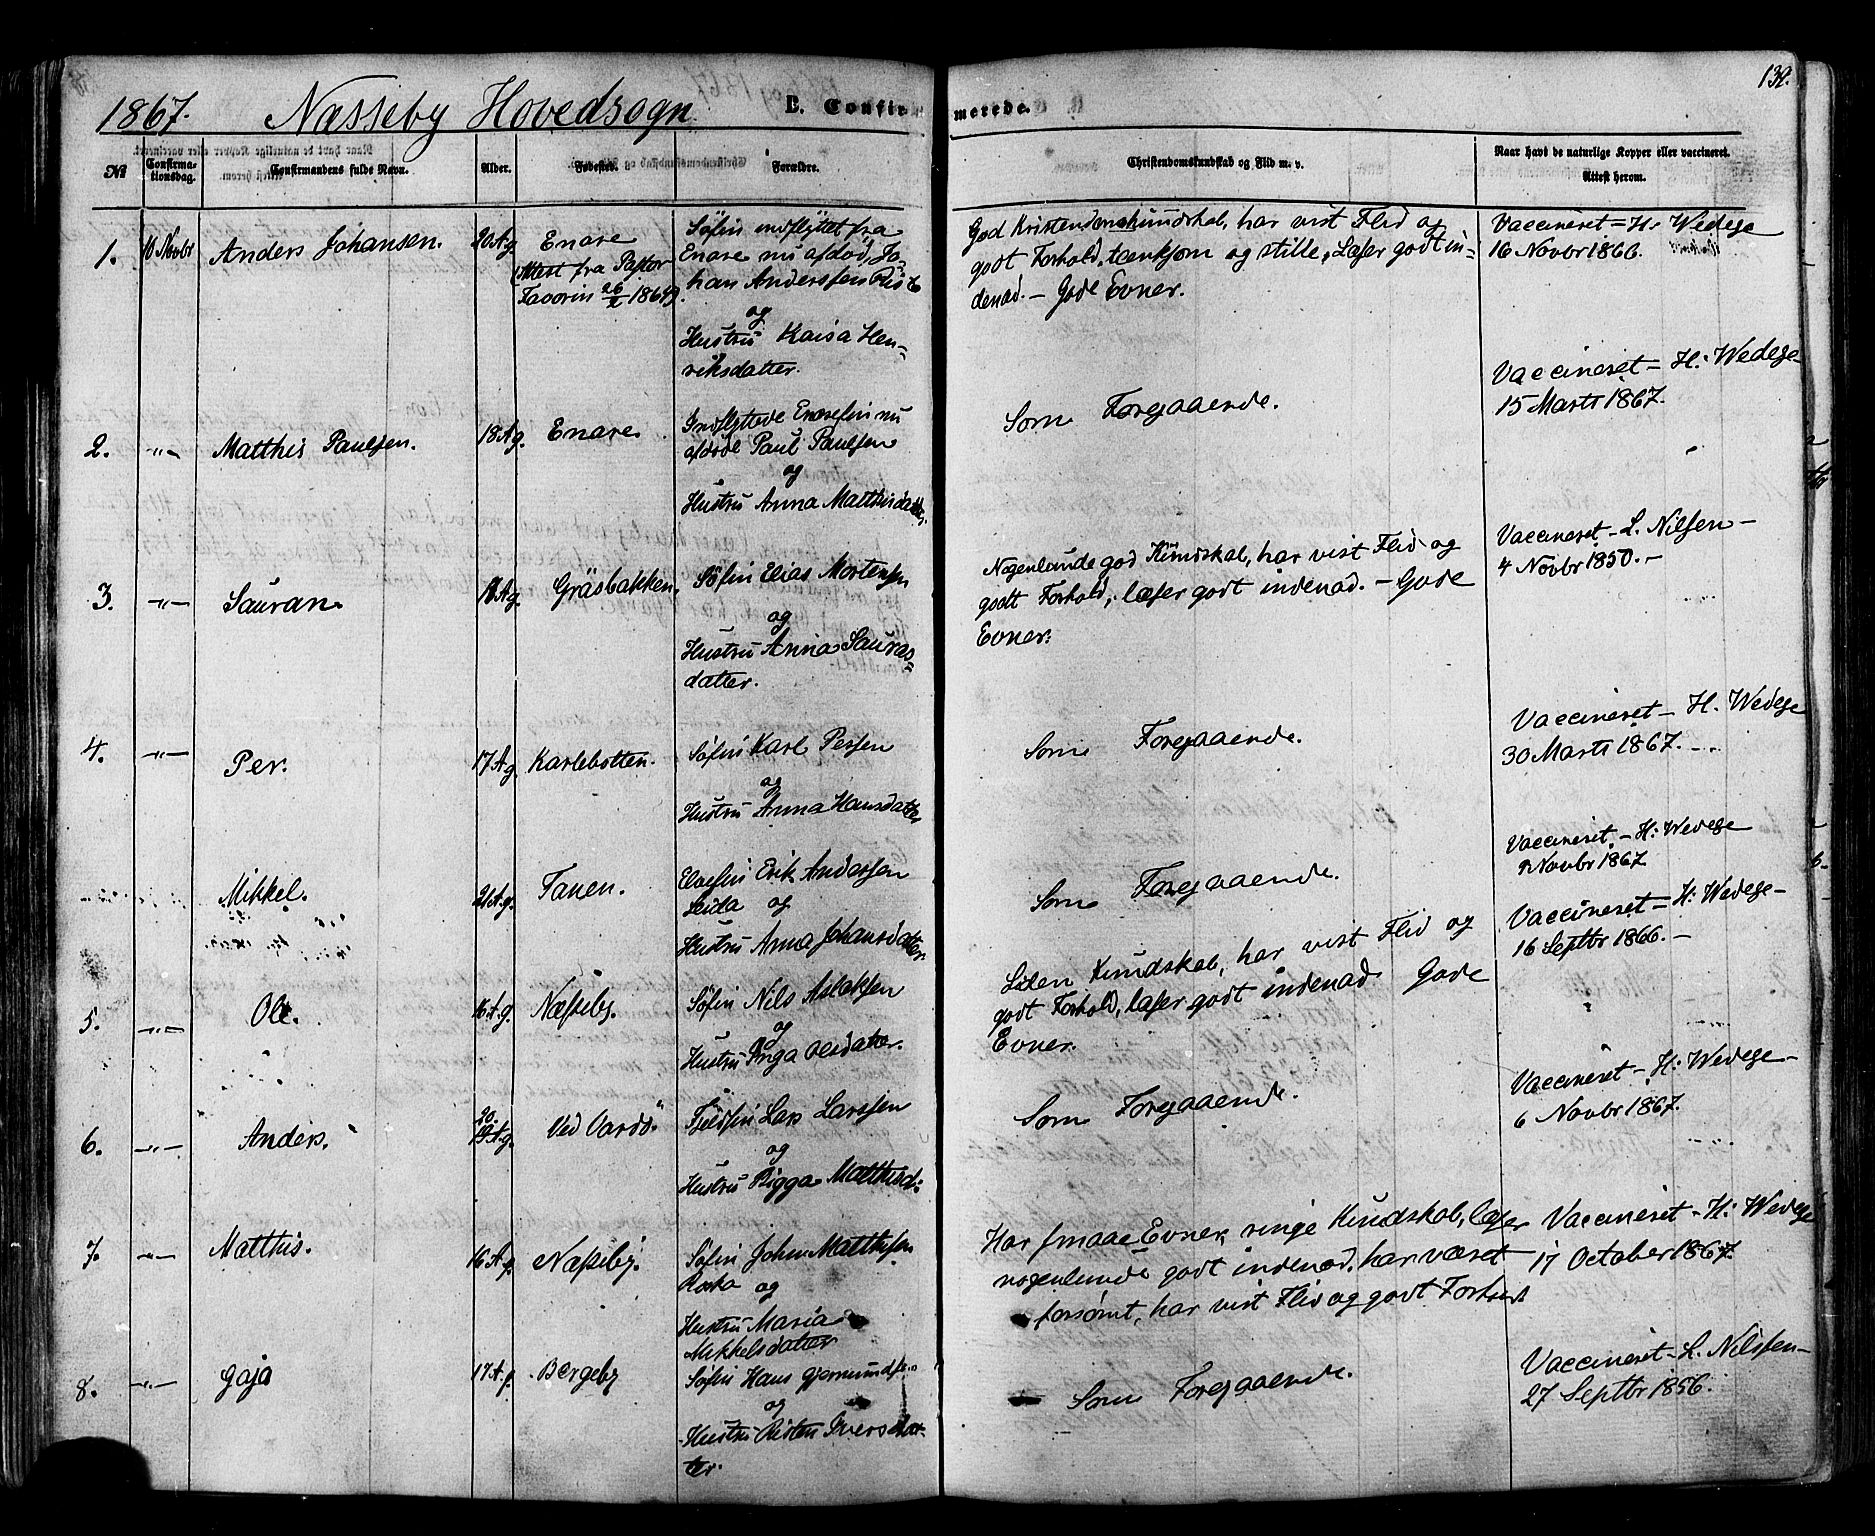 132.
1867. Næsseby Hovedsogn. B. Confirmerede.
No
Confirma-
tionsdag.
Confirmandens fulde Navn.
Alder.
Fødested.
Forældre.
Christendomskundskab og Flid m. v.
Naar havt de naturlige Kopper eller vaccineret.
Attest herom.
1. 10 Novbr Anders Johansen. 20 A g. Enare
(Attest fra Pastor
Favorin 26/2 1864).
Søfin indflyttet fra
Enare nu afdød, Jo-
han Anderssen
og
Hustru Kaisa Hen-
riksdatter.
God Kristendomskundskab, har vist Flid og
godt Forhold, tænksom og stille, Læser godt in-
denad. – Gode Evner.
Vaccineret = H. Wedege
16 Novbr 1866.
2. –„– Matthis Paulsen. 18 A g. Enare.
Indflyttede Enarefin nu
afdøde Paul Paulsen
og
Hustru Anna Matthisdatter.
Som Foregaaende.
Vaccineret – H: Wedege
15 Marts 1867.
3. –„– Sauran. 18 A g. Gräsbakken.
Søfin Elias Mortensen
og
Hustru Anna Sauras-
datter.
Nogenlunde god Kundskab, har vist Flid og
godt Forhold, læser godt indenad. – Gode
Evner.
Vaccineret – L. Nilsen –
4 Novbr 1850. –
4. –„– Per. 17 A g. Karlebotten.
Søfin Karl Persen
og
Hustru Anna Hansdatter
Som Foregaaende.
Vaccineret – H. Wedege
30 Marts 1867.
Mikkel. 21 A g. Tanen.
Elvefin Erik Anderssen
og
Hustru Anna Johansdatter.
Som Foregaaende.
Vaccineret – H: Wedege
2 Novbr 1867.
5. –„– Ole. 16 A g. Næsseby.
Søfin Nils Aslaksen
og
Hustru Inga Olsdatter.
Liden Kundskab, har vist Flid og
godt Forhold, læser godt indenad. Gode
Evner.
Vaccineret = H: Wedege –
16 Septbr 1866. –
6. –„– Anders. 20. 19 A g. Ved Vardö.
Fjeldfin Lars Larssen
og
Hustru Rigga Matthisd:
Som Foregaaende.
Vaccineret – H: Wedege –
6 Novbr 1867.
7. –„– Matthis. 16 A g. Næsseby.
Søfin John Matthisen
og
Hustru Maria
Mikkelsdatter
Har smaae Evner, ringe Kundskab, læser
nogenlunde godt indenad, har været
forsømt, har vist Flid og godt Forhold
Vaccineret – H: Wedege
17 October 1867.
8. –„– Gaja 17 A g. Bergeby
Søfin Hans
og
Hustru Risten Iversdat-
ter.
Som Foregaaende.
Vaccineret – L. Nilssen –
27 Septbr 1856.